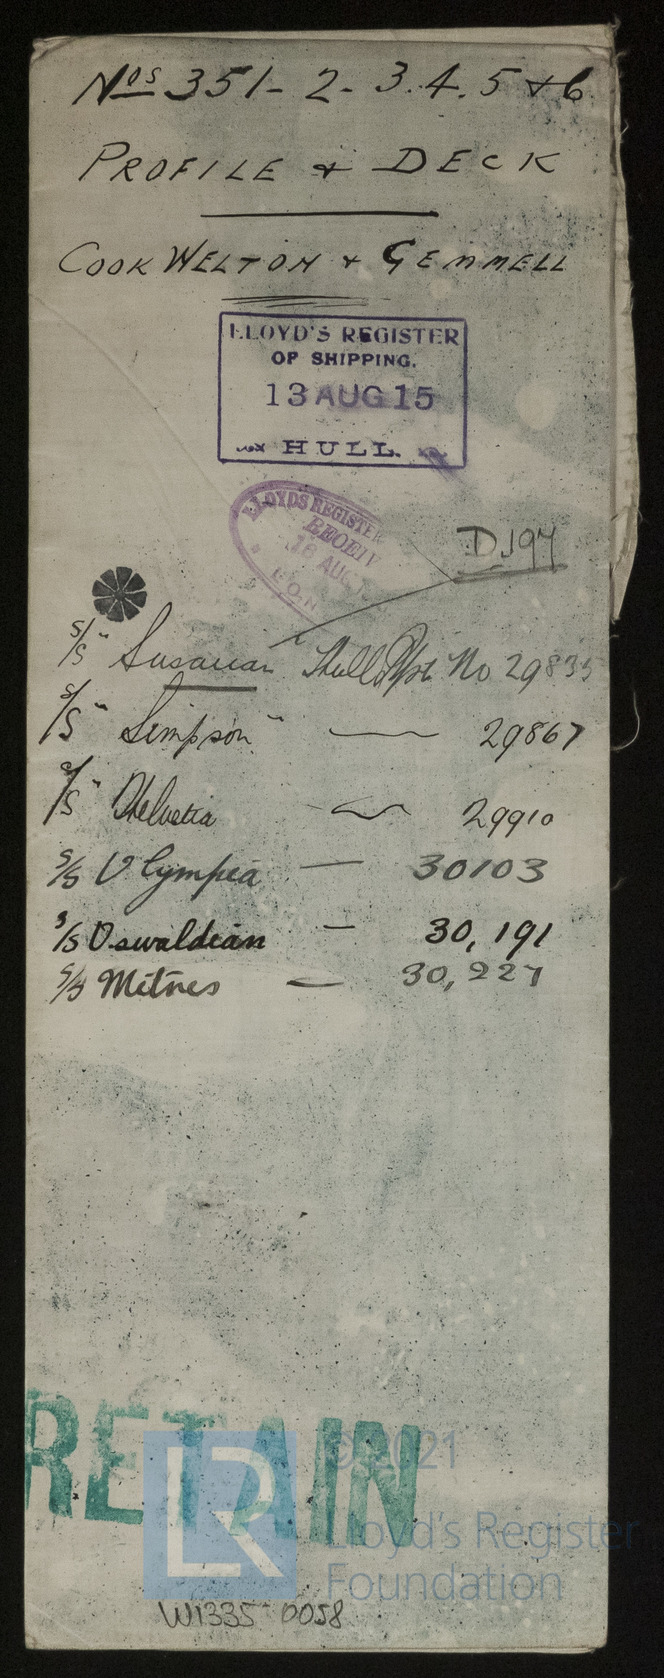 Nos 351-2-3.4.5 & 6
PROFILE & DECK
COOK WELTON & GEMMELL
LLOYD'S REGISTER
OF SHIPPING.
13 AUG 15
HULL.
LLOYDS REGISTER
RECEIV
16 AUG
LON
D.197
S/S "Susarian" Hull Rpt No 29835
S/S "Simpson" — 29867
S/S "Helvetia — 29910
S/S Olympia — 30103
S/S Oswaldian — 30,191
S/S Mitres — 30,227
RETAIN
LR
© 2021
Lloyd's Register
Foundation
W1335-0058